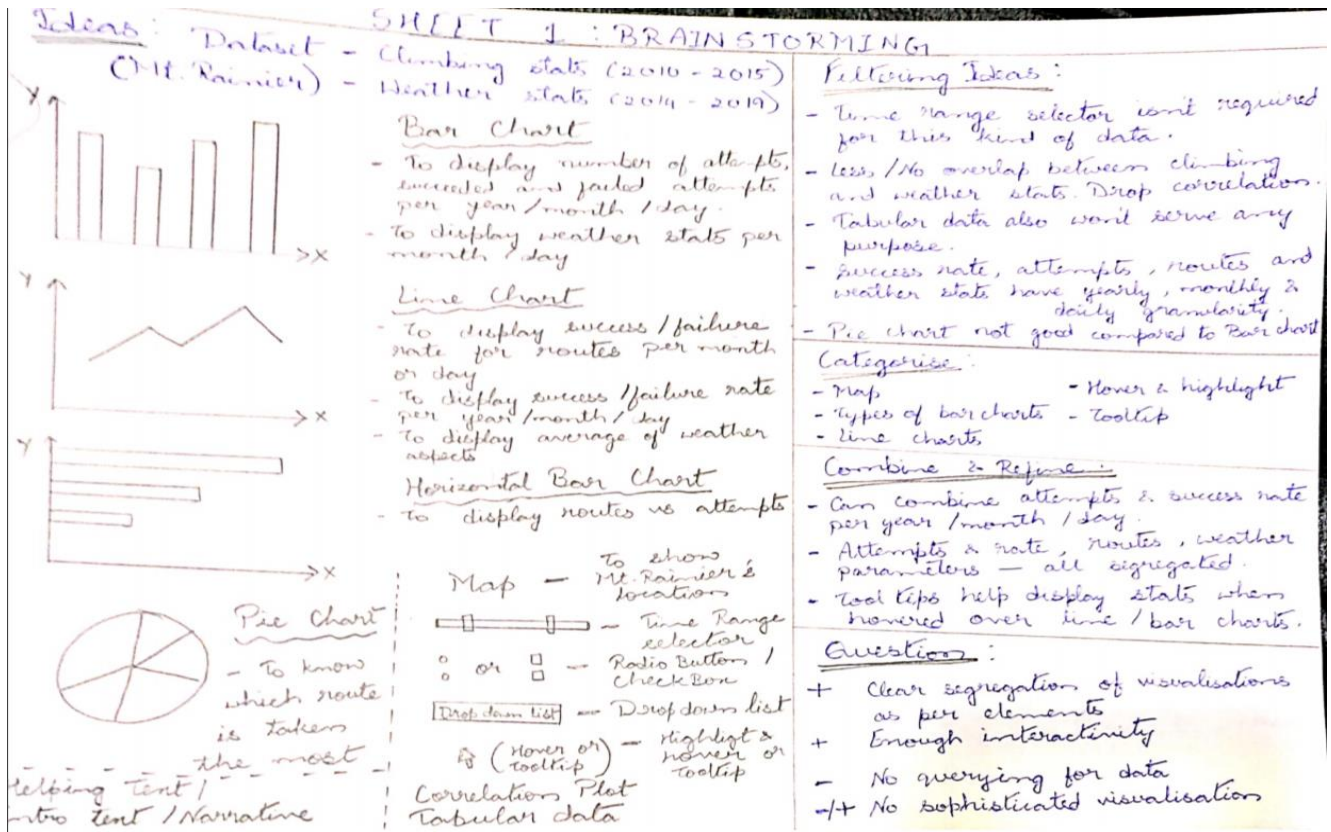 SHEET 1 : BRAINSTORMING
Ideas : Dataset - Climbing stats (2010 - 2015)
(Mt. Rainier) - Weather stats (2014 - 2019)
Y
X
Bar Chart
- To display number of attempts,
succeeded and failed attempts
per year/month/day.
- To display weather stats per
month/day
Y
X
Line Chart
- To display success/failure
rate for routes per month
or day
- To display success/failure rate
per year/month/day
- To display average of weather
aspects
Y
X
Horizontal Bar Chart
- To display routes vs attempts
Pie Chart
- To know
which route
is taken
the most
Helping Text /
Intro text / Narrative
Map — To show
Mt. Rainier's
location
— Time Range
selector
or — Radio Button /
CheckBox
Drop down list — Dropdown list
(Hover or — Highligt &
tooltip) hover or
tooltip
Correlation Plot
Tabular data
Filtering Ideas :
- Time range selector isn't required
for this kind of data.
- Less/No overlap between climbing
and weather stats. Drop correlation.
- Tabular data also won't serve any
purpose.
- success rate, attempts, routes and
weather stats have yearly, monthly &
daily granularity.
- Pie chart not good compared to Bar chart
Categorise :
- Map - Hover & highlight
- Types of bar charts - Tooltip
- Line charts
Combine & Refine :
- Can combine attempts & success rate
per year/month/day.
- Attempts & rate, routes, weather
parameters — all segregated.
- Tool tips help display stats when
hovered over line/bar charts.
Question :
+ Clear segregation of visualisations
as per elements
+ Enough interactivity
- No querying for data
-/+ No sophisticated visualisation